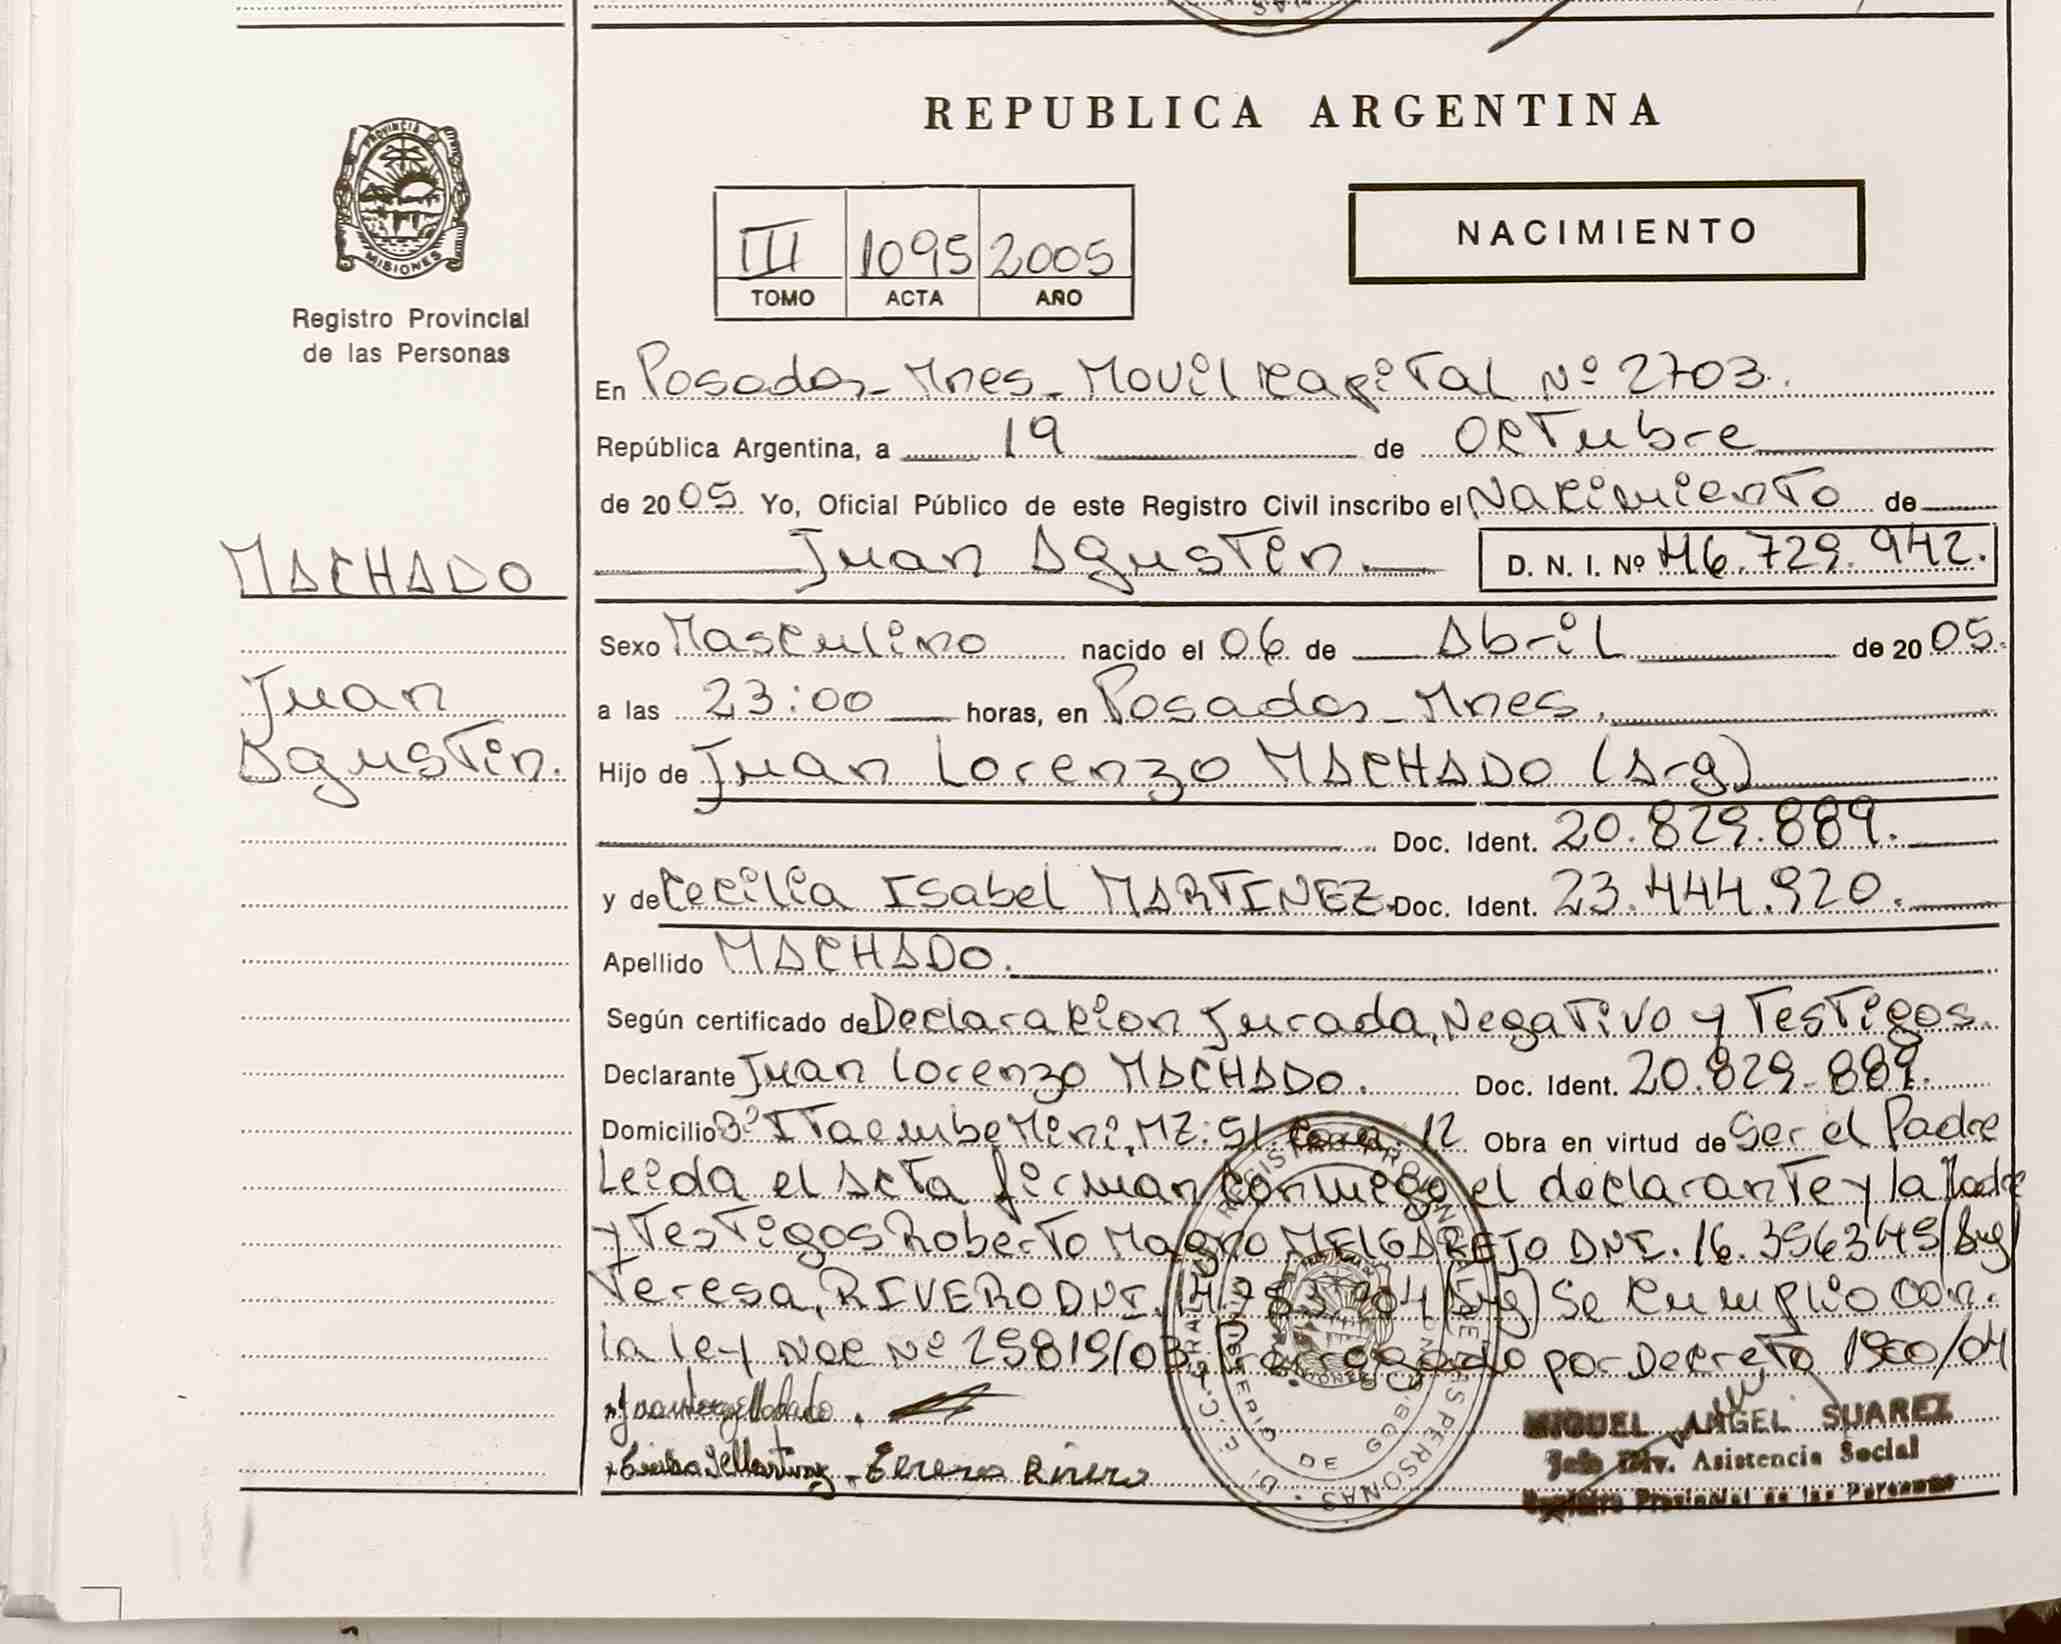 REPUBLICA ARGENTINA
PROVINCIA DE
MISIONES
Registro Provincial
de las Personas
III 1095 2005
TOMO ACTA AÑO
NACIMIENTO
En Posadas - Mnes - Movil Capital Nº 2703.
República Argentina, a 19 de Octubre
de 2005 Yo, Oficial Público de este Registro Civil inscribo el Nacimiento de
Juan Agustin. D. N. I. Nº 46.729.942.
MACHADO
Juan
Agustin.
Sexo Masculino nacido el 06 de Abril de 2005.
a las 23:00 horas, en Posadas - Mnes.
Hijo de Juan Lorenzo MACHADO (Arg)
Doc. Ident. 20.829.889.
y de Cecilia Isabel MARTINEZ. Doc. Ident. 23.444.920.
Apellido MACHADO.
Según certificado de Declaracion Jurada, Negativo y Testigos.
Declarante Juan Lorenzo MACHADO. Doc. Ident. 20.829.889.
Domicilio Bº Itaembe Mini, MZ: 51. 12 Obra en virtud de Ser el Padre
Leida el Acta firman conmigo el declarante y la Madre
y Testigos Roberto Magno MELGAREJO DNI. 16.
Teresa, RIVERO DNI. (Arg) Se Cumplio con
la ley Nac Nº 25819/03 Prorrogado por Decreto 1900/04
Teresa Rivero
MIGUEL ANGEL SUAREZ
Jefe Div. Asistencia Social
Registro Provincial de las Personas
REGISTRO PROVINCIAL DE LAS PERSONAS